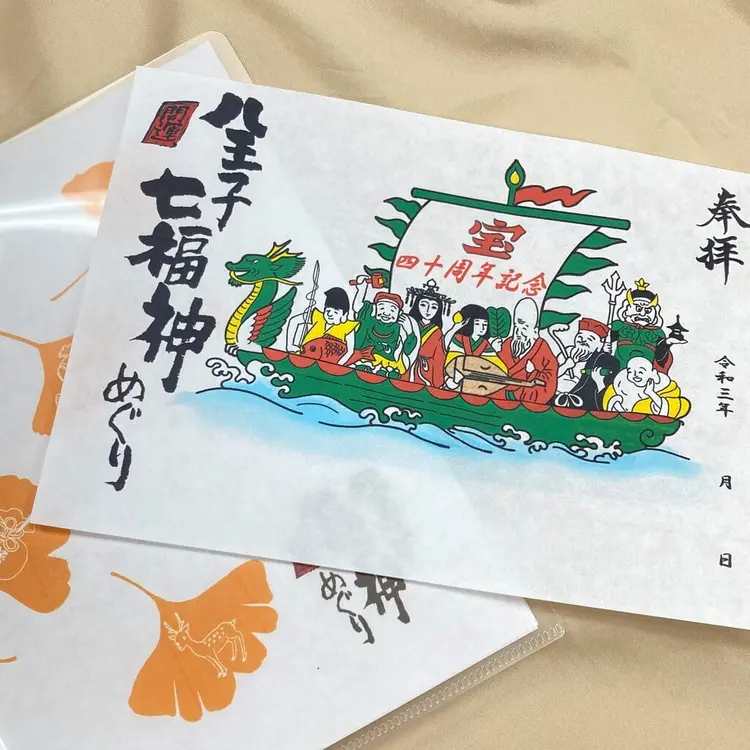 奉拝
令和三年 月 日
宝
四十周年記念
開運
八王子
七福神
めぐり
神
めぐり